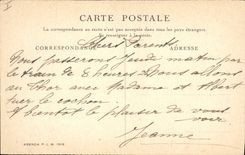 CARTE POSTALE
La correspondance au recto n'est pas acceptée dans tous les pays étrangers.
Se renseigner à la poste.
CORRESPONDANCE ADRESSE
Chers Parents
Nous passerons Jeudi matin par
le train de 8 heures. Nous allons
au Thor avec Madame et Albert
tuer le cochon.
A bientot le plaisir de vous
voir
Jeanne